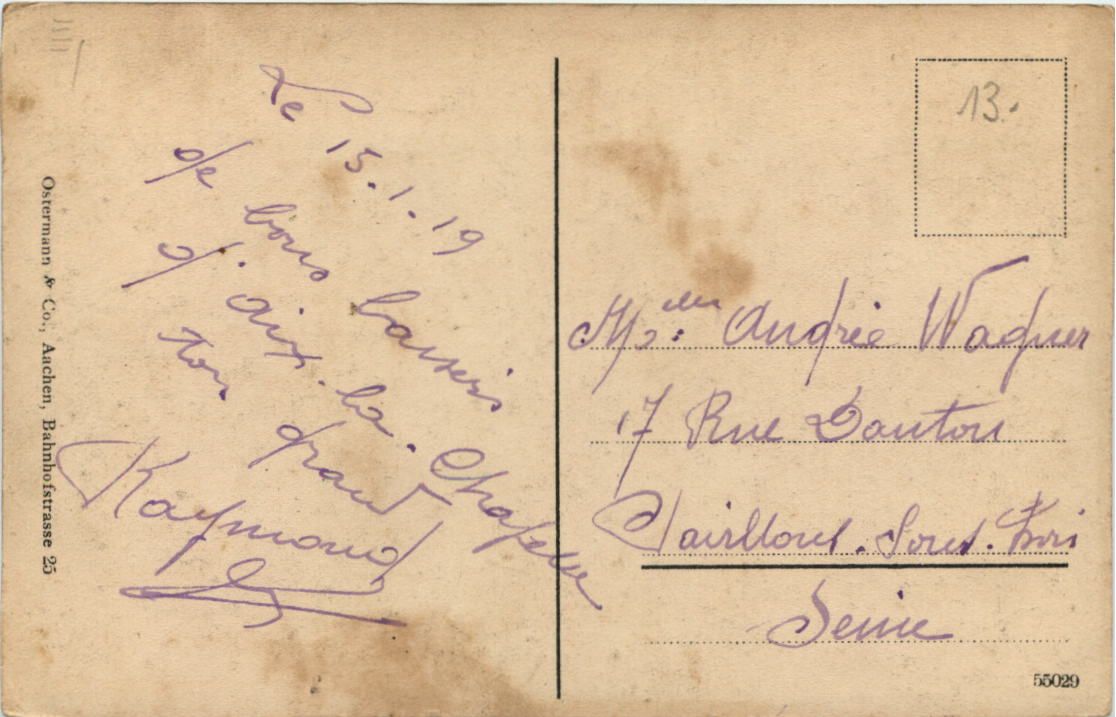 Le 15.1.19
de bons baisers
d'aix-la-Chapelle
ton grand
Raymond
Ostermann & Co., Aachen, Bahnhofstrasse 25
13.
Andrée Wagner
17 Rue Danton
Sous-Bois
Seine
55029